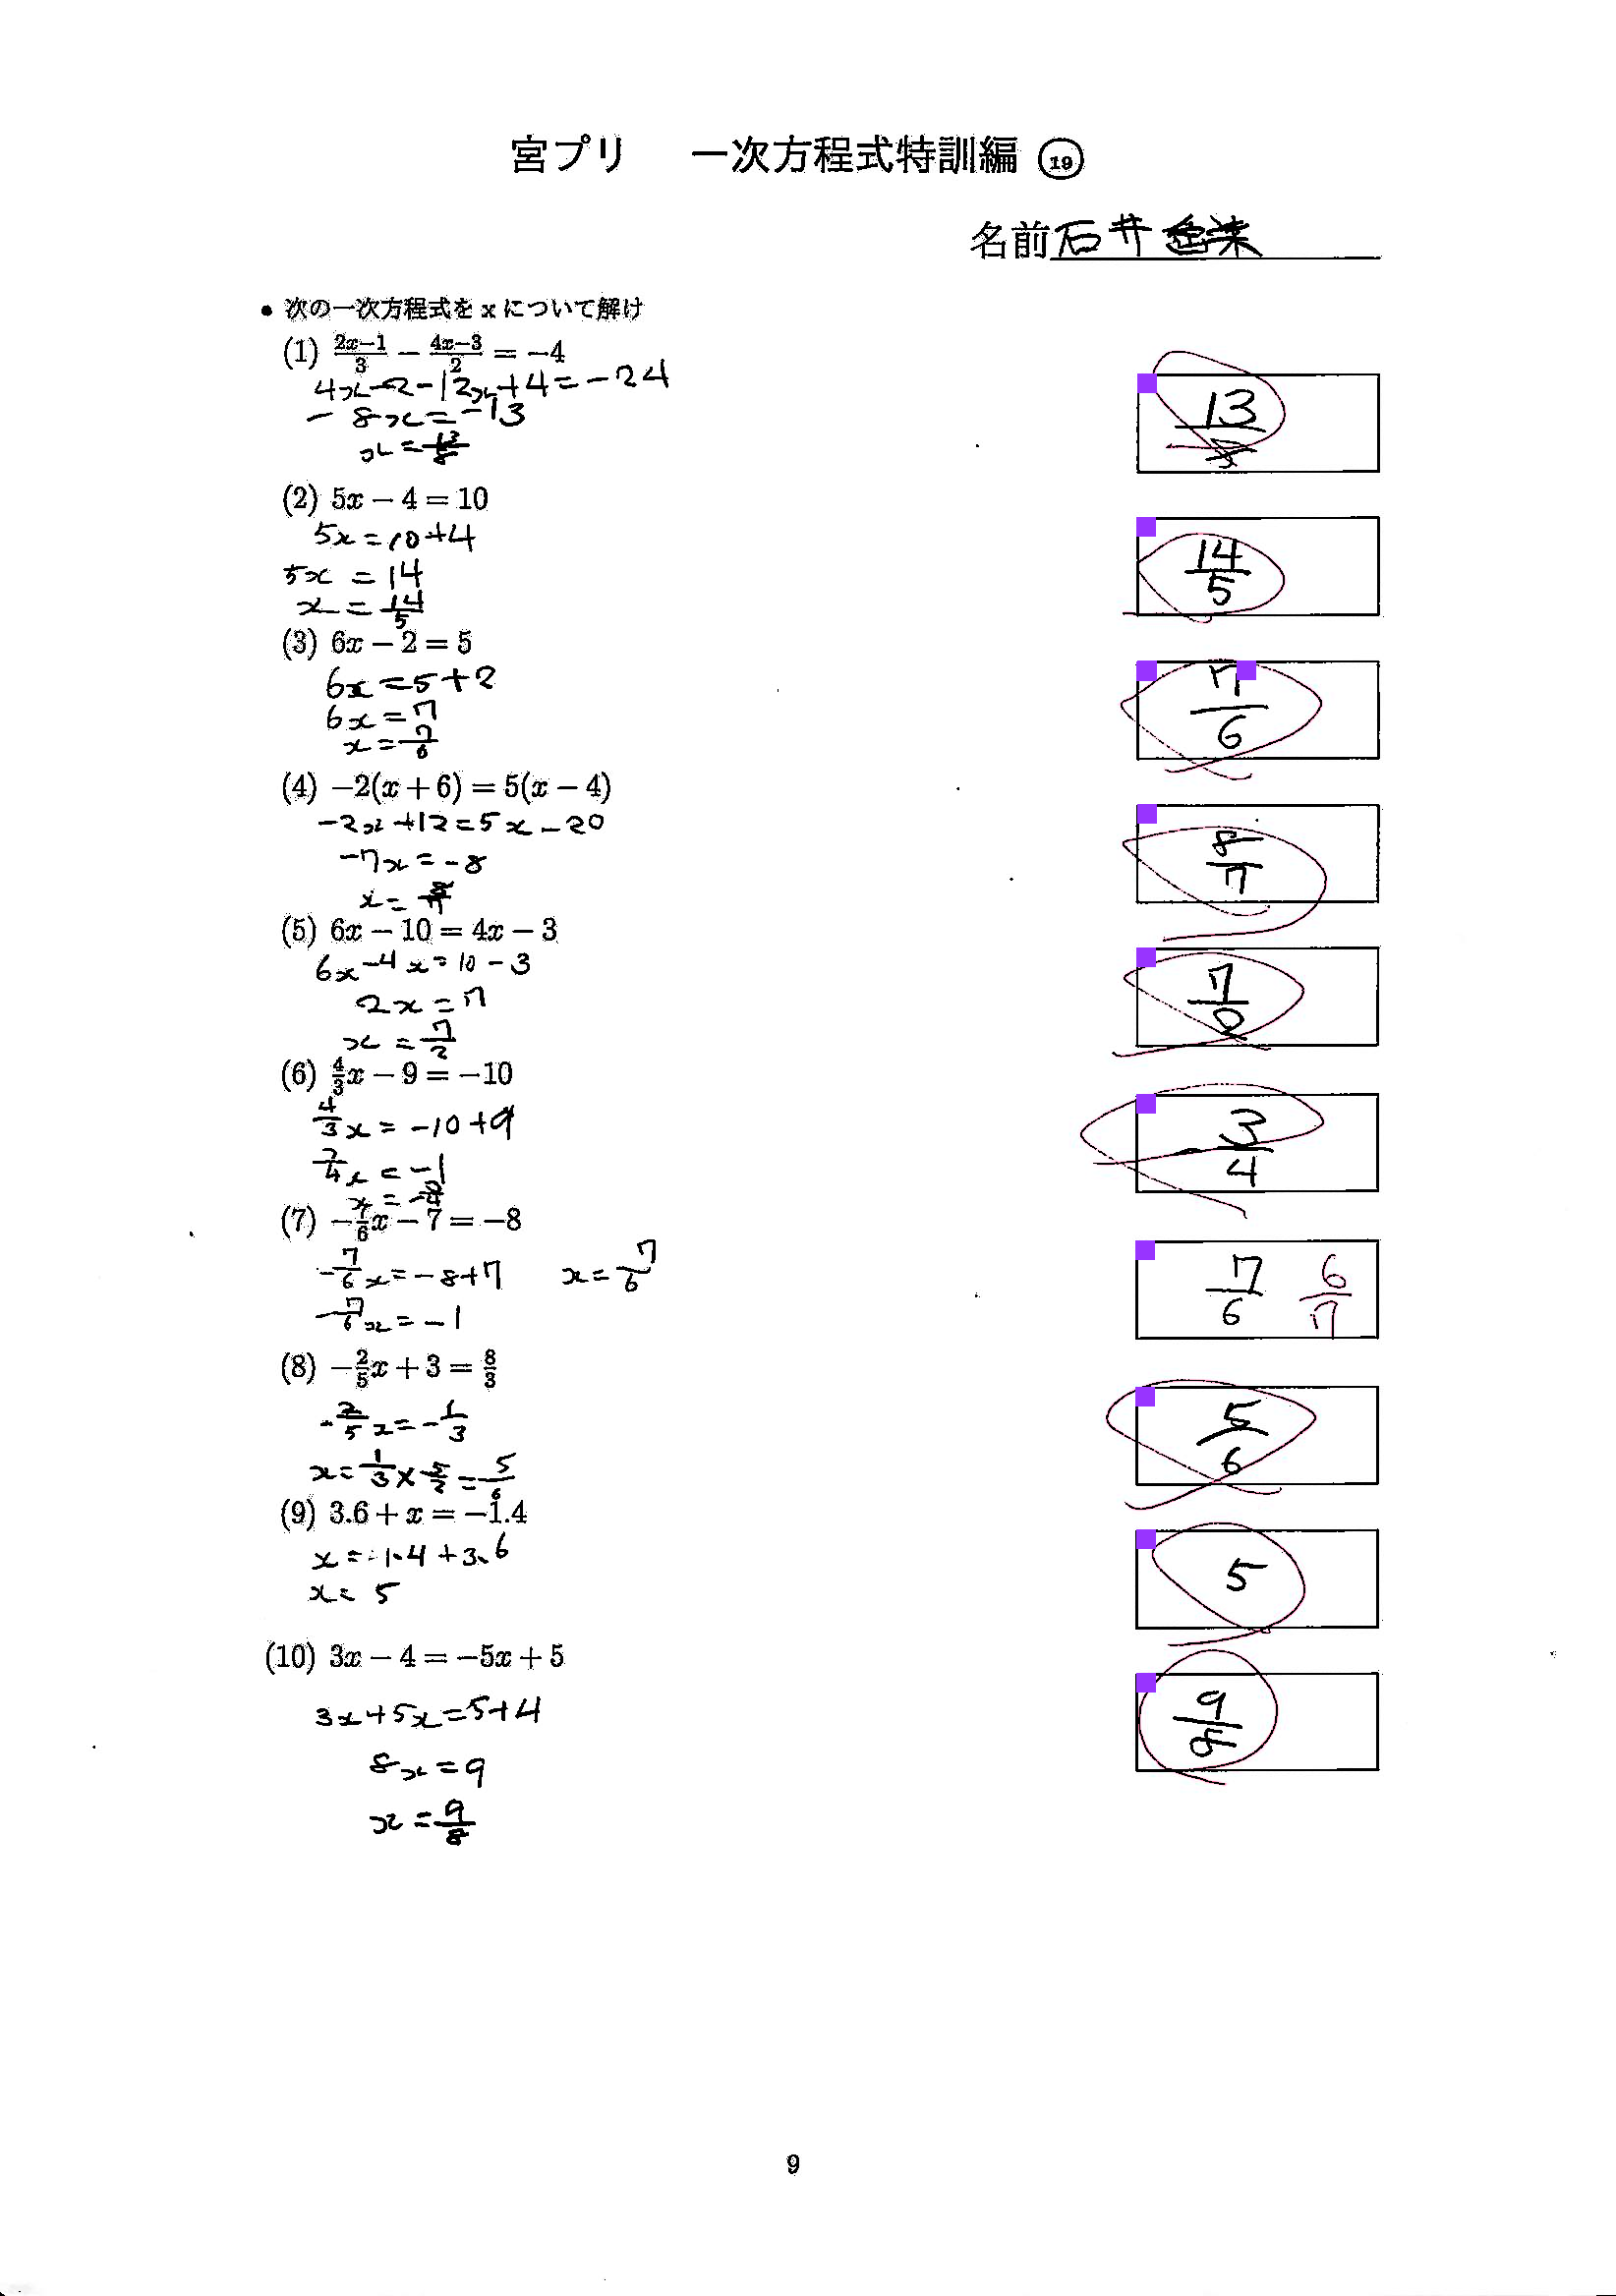 宮プリ 一次方程式特訓編 ⑲
名前 石井
• 次の一次方程式を x について解け
(1) \frac{2x-1}{3} - \frac{4x-3}{2} = -4
4x-2-12x+4=-24
-8x=-13
x=\frac{13}{8}
\frac{13}{8}
(2) 5x - 4 = 10
5x=10+4
5x=14
x=\frac{14}{5}
\frac{14}{5}
(3) 6x - 2 = 5
6x=5+2
6x=7
x=\frac{7}{6}
\frac{7}{6}
(4) -2(x + 6) = 5(x - 4)
-2x+12=5x-20
-7x=-8
x=\frac{8}{7}
\frac{8}{7}
(5) 6x - 10 = 4x - 3
6x-4x=10-3
2x=7
x=\frac{7}{2}
\frac{7}{2}
(6) \frac{4}{3}x - 9 = -10
\frac{4}{3}x=-10+9
x=-1
x=-\frac{3}{4}
-\frac{3}{4}
(7) -\frac{7}{6}x - 7 = -8
-\frac{7}{6}x=-8+7 x=\frac{7}{6}
-\frac{7}{6}x=-1
\frac{7}{6} \frac{6}{7}
(8) -\frac{2}{5}x + 3 = \frac{8}{3}
-\frac{2}{5}x=-\frac{1}{3}
x=\frac{1}{3}×\frac{5}{2}=\frac{5}{6}
\frac{5}{6}
(9) 3.6 + x = -1.4
x=-1.4+3.6
x=5
5
(10) 3x - 4 = -5x + 5
3x+5x=5+4
8x=9
x=\frac{9}{8}
\frac{9}{8}
9